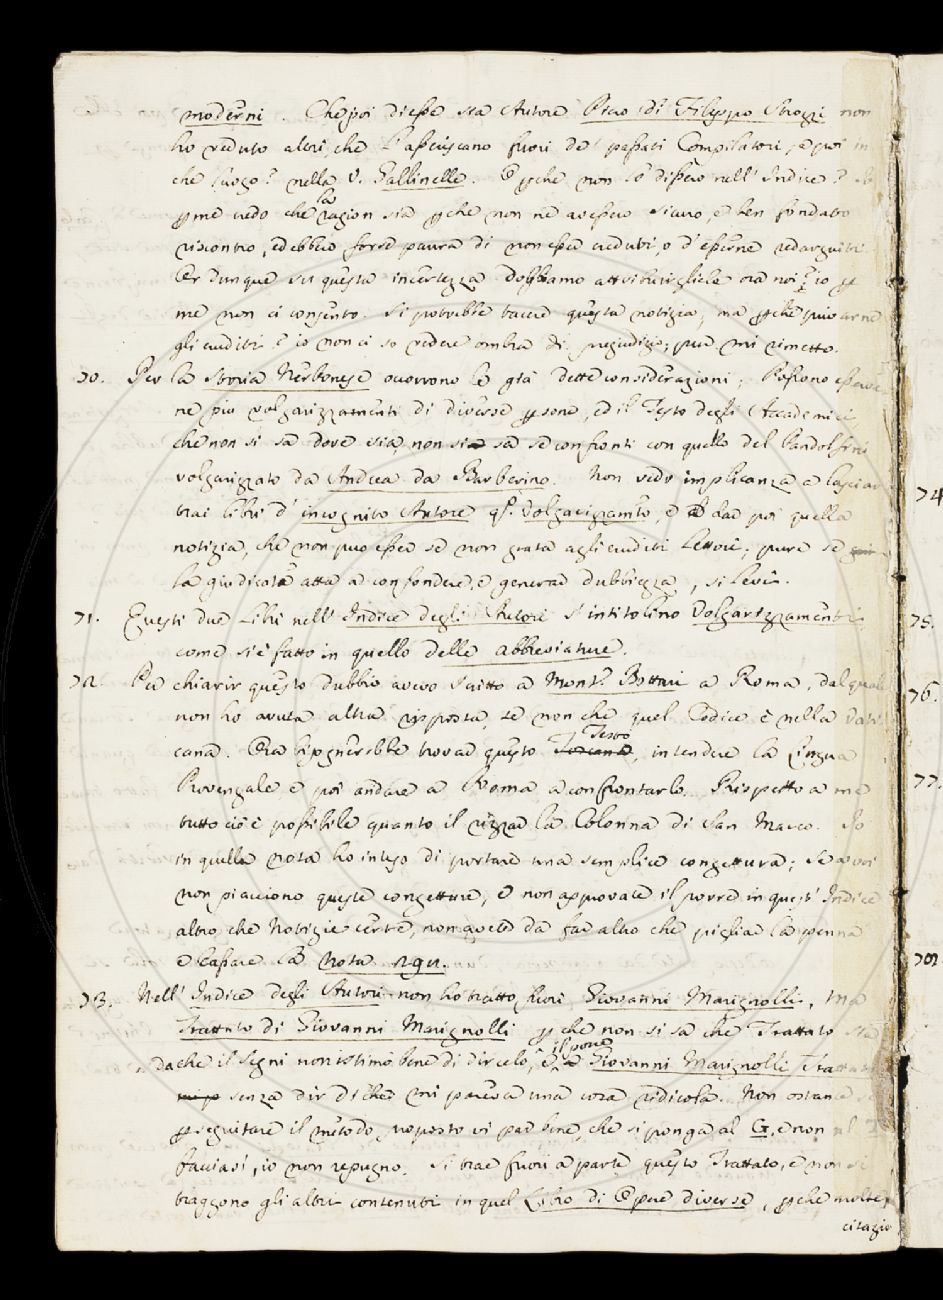 moderni. Che poi dicesse sta Autore Piero di Filippo Strozzi non
ho veduto altri, che l'asseriscano fuori de' passati Compilatori, e poi in
che luogo? nella V. Gallinelle. E pche non lo dissero nell'Indice? Io
pme credo che la ragion sia pche non ne avessero sicuro, e ben fondato
riscontro, ed ebbero forse paura di non esser creduti, o d'esserne redarguiti
Or dunque su questa incertezza dobbiamo attribuirgliele ora noi? io p
me non ci consento. Si potrebbe tacere questa notizia, ma pchè privarne
gli eruditi? io non ci so vedere ombra di pregiudizio; pure mi rimetto.
70. Per la Storia Nerbonese occorrono le già dette considerazioni; Possono esserve
ne più volgarizzamenti di diverse psone, ed il Testo degli Accademici,
che non si sa dove sia, non si sa se confronti con quello del Pandolfini
volgarizzato da Andrea da Barberino. Non vedo implicanza e lasciar
trai libri d'incognito Autore qt. Volgarizzamto, e dar poi quella
notizia, che non può esser se non grata agli eruditi Lettori; pure se
la giudicate atta a confondere, e generar dubbiezza, si levi.
71. Questi due Libri nell'Indice degli Autori s'intitolino Volgarizzamenti
come si è fatto in quello delle abbreviature.
72. Per chiarir questo dubbio avevo scritto a Monsr. Bottari a Roma, dal quale
non ho avuta altra risposta, se non che quel Codice è nella Vati
cana. Ora bisognerebbe trovar questo Testo, intendere la Lingua
Provenzale e poi andare a Roma a confrontarlo. Rispetto a me
tutto ciò è possibile quanto il rizzar la Colonna di San Marco. Io
in quella nota ho inteso di portare una semplice congettura; Se a voi
non piacciono queste congetture, e non approvate il porre in quest'Indice
altro che Notizie certe, non avete da far altro che pigliar la penna
e cassare la Nota 291.
73. Nell'Indice degli Autori non ho tratto fuori Giovanni Marignolli, ma
Trattato di Giovanni Marignolli pche non si sa che Trattato sia
dache il Segni non stimò bene di dircelo, e il porre Giovanni Marignolli Trattato
senza dir di che mi pareva una cosa ridicola. Non ostante se
pseguitare il metodo proposto vi par bene, che si ponga al G, e non al T
facciasi, io non repugno. Si trae fuori a parte questo Trattato, e non si
traggono gli altri contenuti in quel Libro di Opere diverse, pche molte
citazio
74
75.
76.
77.